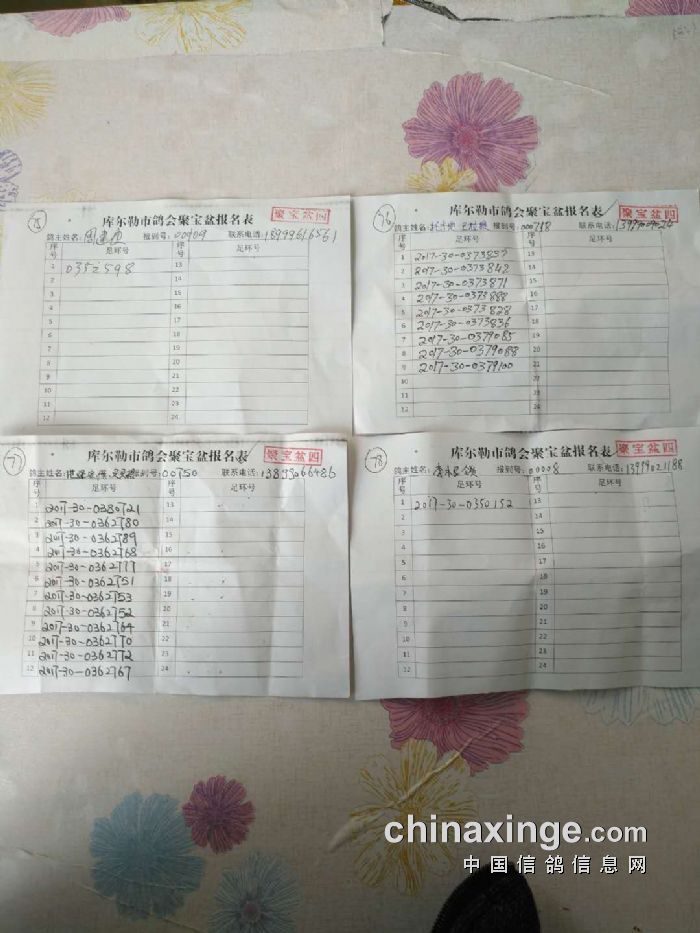 75
库尔勒市鸽会聚宝盆报名表
聚宝盆四
鸽主姓名: 报到号:00909 联系电话:18999616561
序号 足环号 序号 足环号
1 0352598 13
2 14
3 15
4 16
5 17
6 18
7 19
8 20
9 21
10 22
11 23
12 24
76
库尔勒市鸽会聚宝盆报名表
聚宝盆四
鸽主姓名: 报到号:000718 联系电话:
序号 足环号 序号 足环号
1 2017-30-0373857 13
2 2017-30-0373842 14
3 2017-30-0373871 15
4 2017-30-0373888 16
5 2017-30-0373828 17
6 2017-30-0373836 18
7 2017-30-0379085 19
8 2017-30-0379088 20
9 2017-30-0379100 21
10 22
11 23
12 24
77
库尔勒市鸽会聚宝盆报名表
聚宝盆四
鸽主姓名: 报到号:00750 联系电话:13899066486
序号 足环号 序号 足环号
1 2017-30-0380721 13
2 2017-30-0362780 14
3 2017-30-0362789 15
4 2017-30-0362768 16
5 2017-30-0362777 17
6 2017-30-0362751 18
7 2017-30-0362753 19
8 2017-30-0362752 20
9 2017-30-0362764 21
10 2017-30-0362770 22
11 2017-30-0362772 23
12 2017-30-0362767 24
78
库尔勒市鸽会聚宝盆报名表
聚宝盆四
鸽主姓名: 报到号:00008 联系电话:13919021188
序号 足环号 序号 足环号
1 2017-30-0350152 13
2 14
3 15
4 16
5 17
6 18
7 19
8 20
9 21
10 22
11 23
12 24
chinaxinge.com
中国信鸽信息网